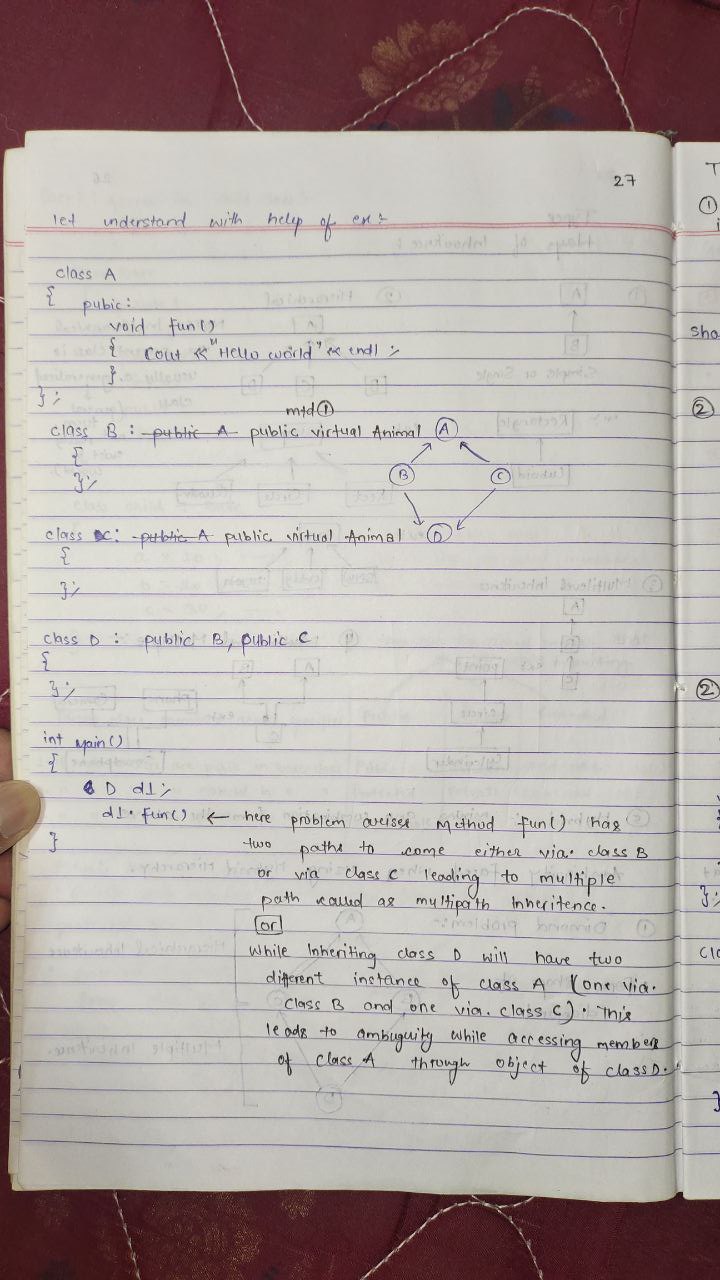 27
let understand with help of ex:-
class A
{
pubic:
void fun()
{ cout << "Hello world" << endl ;
}
};
mtd ①
class B : public A public virtual Animal
{
};
A
B C
D
class C: public A public virtual Animal
{
};
class D : public B, public C
{
};
int main()
{
D d1;
d1. fun() ← here problem areises Method fun() has
two paths to come either via. class B
or via class C leading to multiple
path called as multipath Inheritence.
}
or
While Inheriting class D will have two
different instance of class A (one via.
class B and one via. class C). This
leads to ambuguity while accessing members
of class A through object of class D.
T
①
sho
②
②
};
cla
}